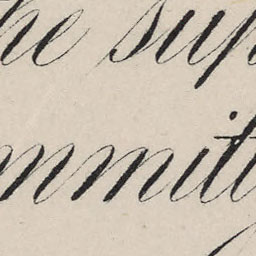 he sup
mmitt